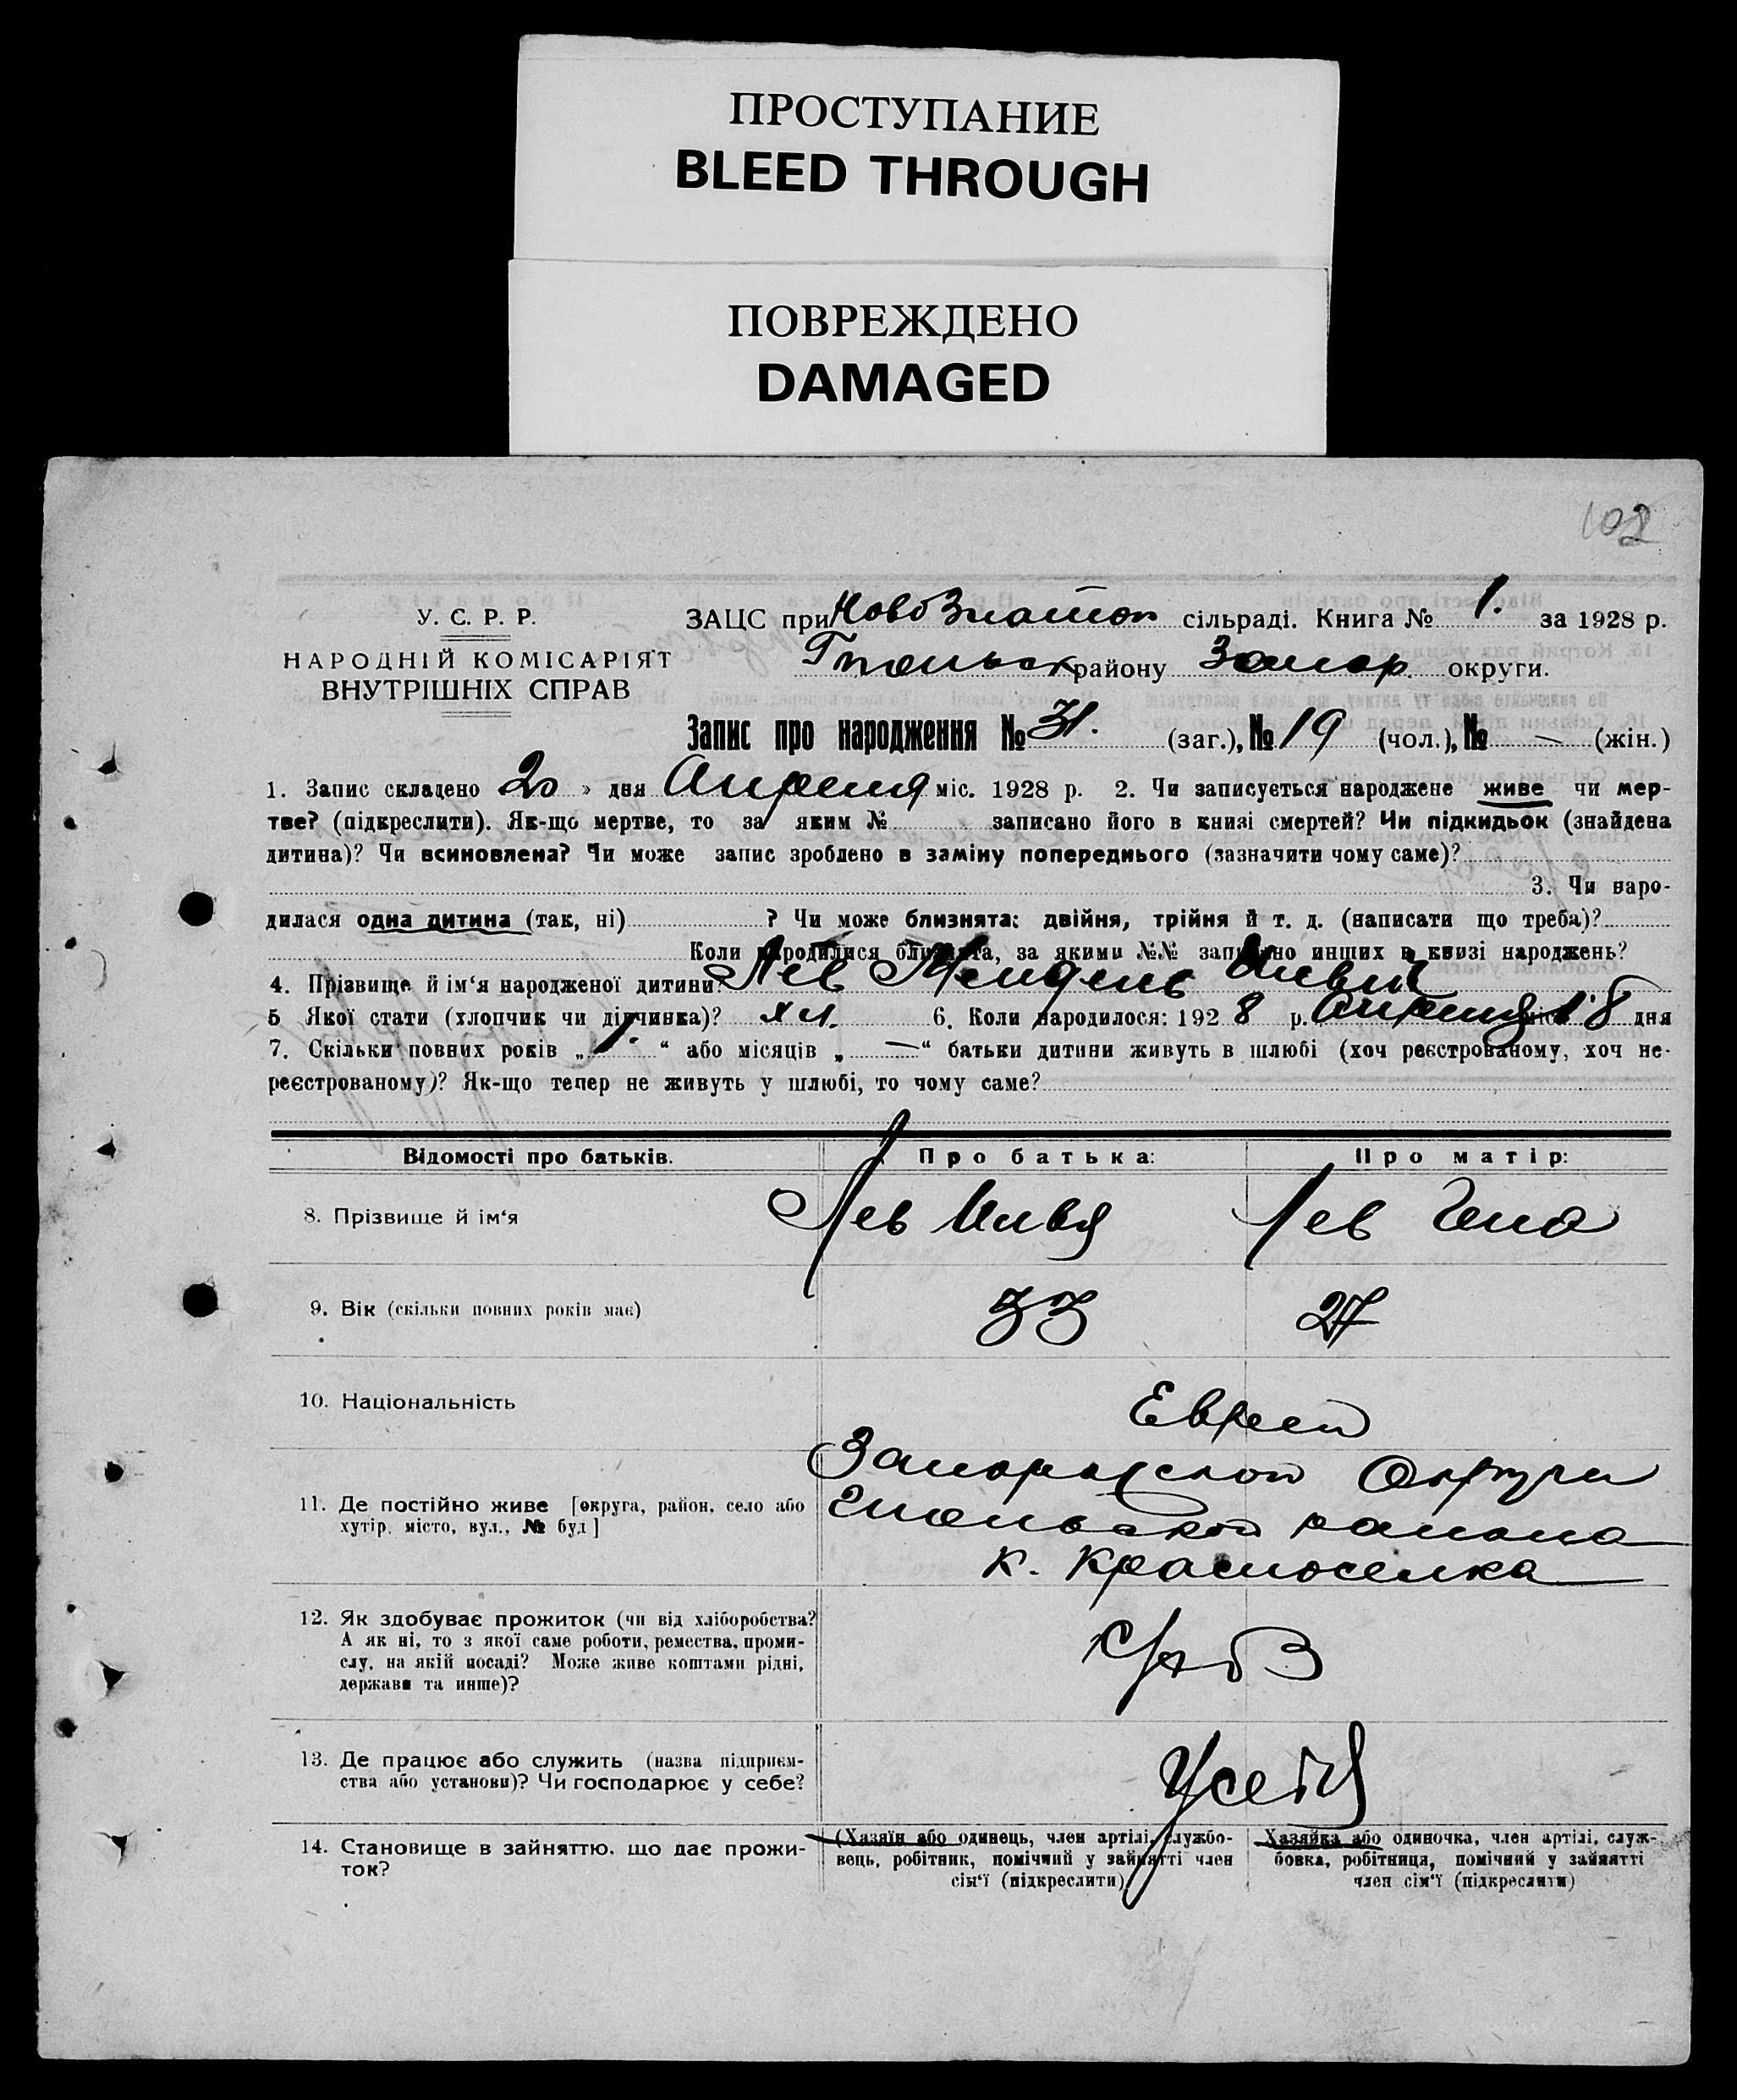 ПРОСТУПАНИЕ
BLEED THROUGH
ПОВРЕЖДЕНО
DAMAGED
102
У. С. Р. Р.
НАРОДНІЙ КОМІСАРІЯТ
ВНУТРІШНІХ СПРАВ
ЗАЦС при НовоЗлатоп сільраді. Книга № 1. за 1928 р.
району Запор. округи.
Запис про народження № 31. (заг.), № 19 (чол.), № — (жін.)
1. Запис складено 20 » дня Апреля міс. 1928 р. 2. Чи записується народжене живе чи мер-
тве? (підкреслити). Як-що мертве, то за яким № записано його в книзі смертей? Чи підкидьок (знайдена
дитина)? Чи всиновлена? Чи може запис зроблено в заміну попереднього (зазначяти чому саме)?
3. Чи наро-
дилася одна дитина (так, ні) ? Чи може близнята: двійня, трійня й т. д. (написати що треба)?
Коли народилися близнята, за якими №№ записано инших в книзі народжень?
4. Прізвище й ім‘я народженої дитини? Лев Мендель
5 Якої стати (хлопчик чи дівчинка)? Хл. 6. Коли народилося: 1928 р. Апреля міс. 18 дня
7. Скільки повних років „ 1. “ або місяців „ — “ батьки дитини живуть в шлюбі (хоч реєстрованому, хоч не-
реєстрованому)? Як-що тепер не живуть у шлюбі, то чому саме?
Відомості про батьків. Про батька: Про матір:
8. Прізвище й ім‘я Лев Лев
9. Вік (скільки повних років має) 33 27
10. Національність Евреи
Запорожской Округи
11. Де постійно живе [округа, район, село або
хутір, місто, вул., № буд] района
к. Красноселка
12. Як здобуває прожиток (чи від хліборобства?
А як ні, то з якої саме роботи, ремества, проми-
слу, на якій посаді? Може живе коштами рідні,
держави та инше)?
13. Де працює або служить (назва підприєм-
ства або установи)? Чи господарює у себе? У себя
14. Становище в зайняттю, що дає прожи-
ток?
(Хазяїн або одинець, член артілі, службо-
вець, робітник, помічний у зайнятті член
сім‘ї (підкреслити)
Хазяйка або одиночка, член артілі, служ-
бовка, робітниця, помічний у зайнятті
член сім‘ї (підкреслити)